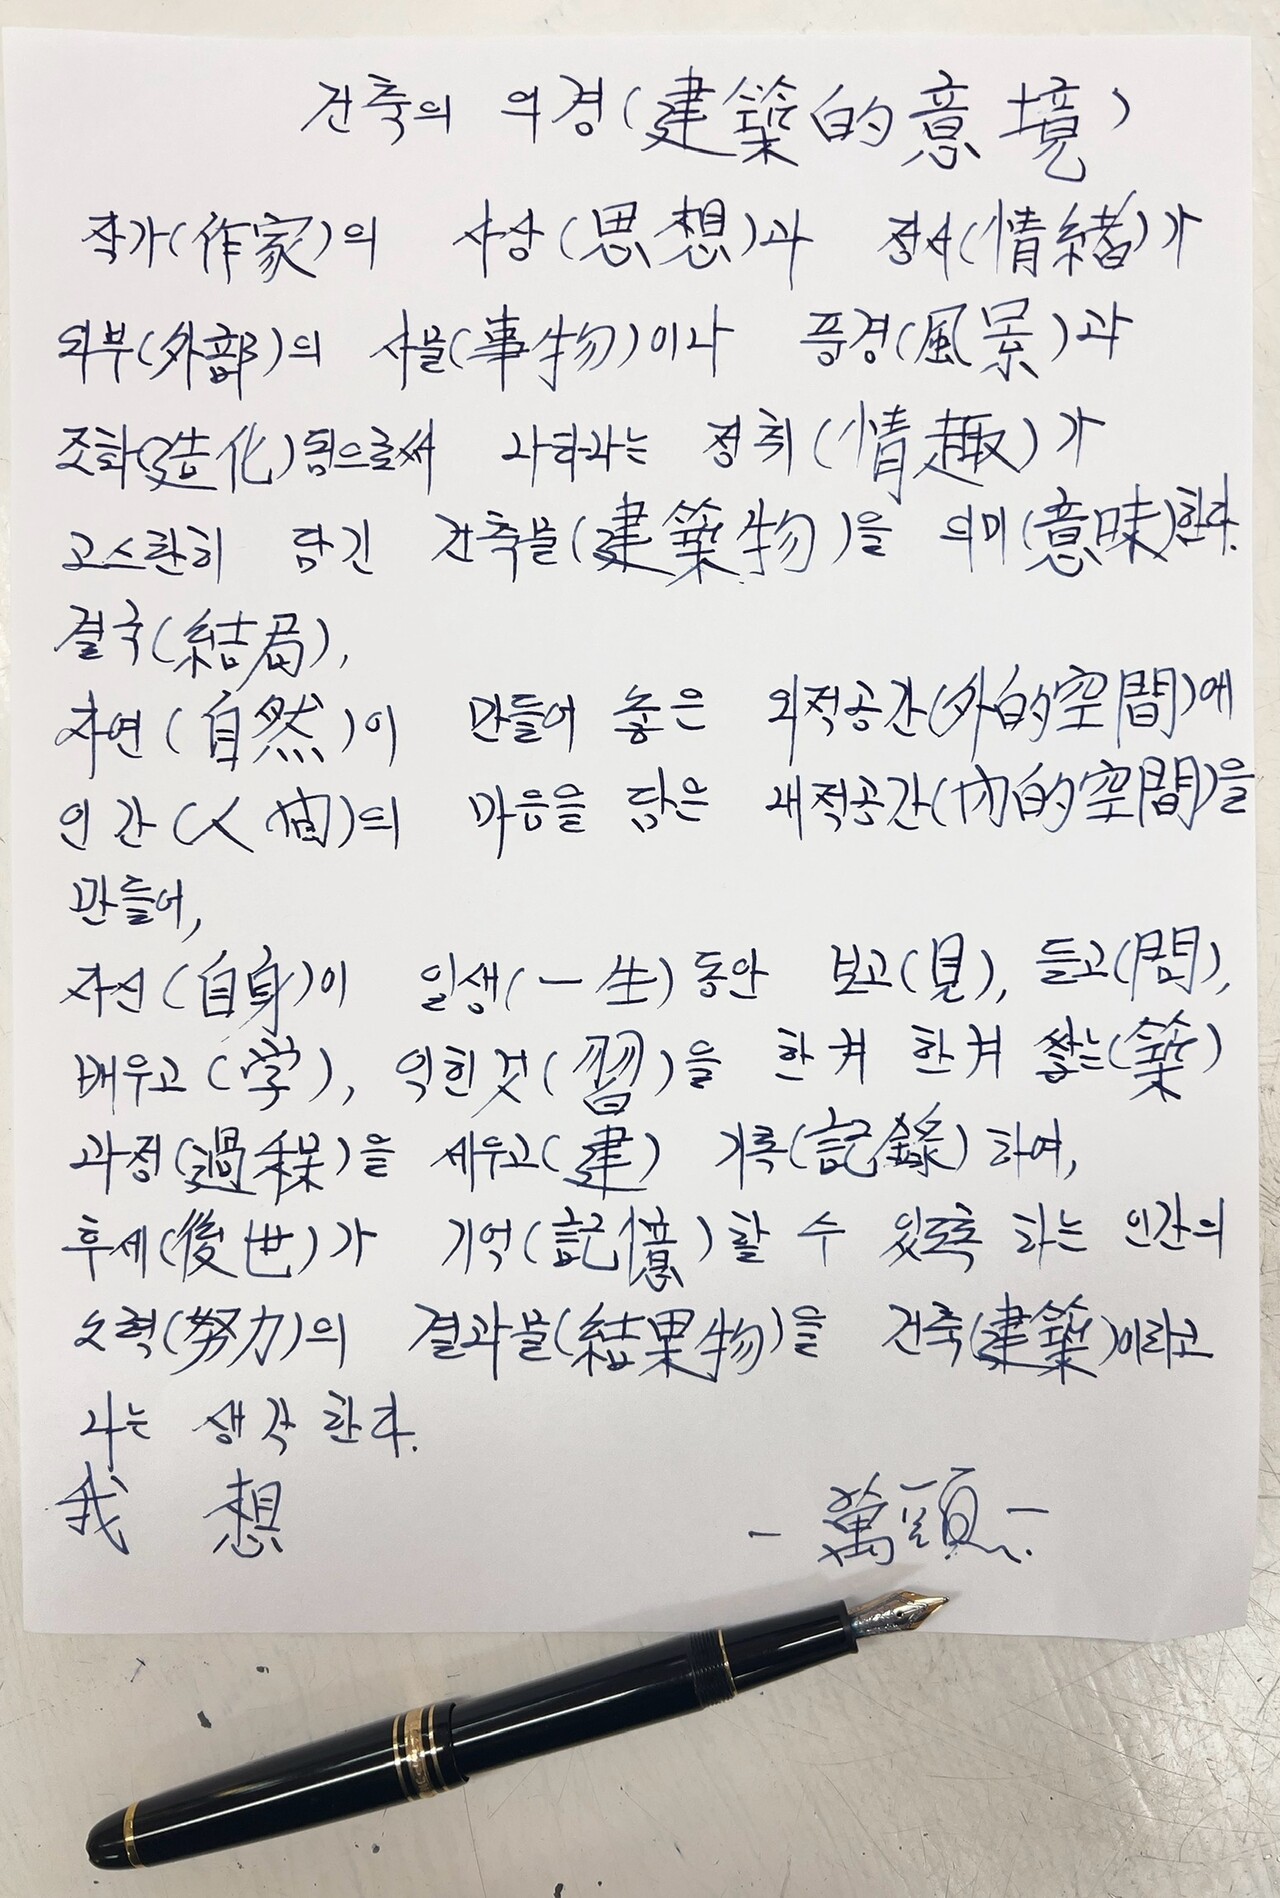 건축의 의경(建築的意境)
작가(作家)의 사상(思想)과 정서(情緖)가
외부(外部)의 사물(事物)이나 풍경(風景)과
조화(造化)됨으로써 나타나는 정취(情趣)가
고스란히 담긴 건축물(建築物)을 의미(意味)한다.
결국(結局),
자연(自然)이 만들어 놓은 외적공간(外的空間)에
인간(人間)의 마음을 담은 내적공간(內的空間)을
만들어,
자신(自身)이 일생(一生) 동안 보고(見), 듣고(聞),
배우고(学), 익힌것(習)을 한켜 한켜 쌓는(築)
과정(過程)을 세우고(建) 기록(記錄)하여,
후세(後世)가 기억(記憶)할 수 있도록 하는 인간의
노력(努力)의 결과물(結果物)을 건축(建築)이라고
나는 생각한다.
我 想
- 萬頭 -